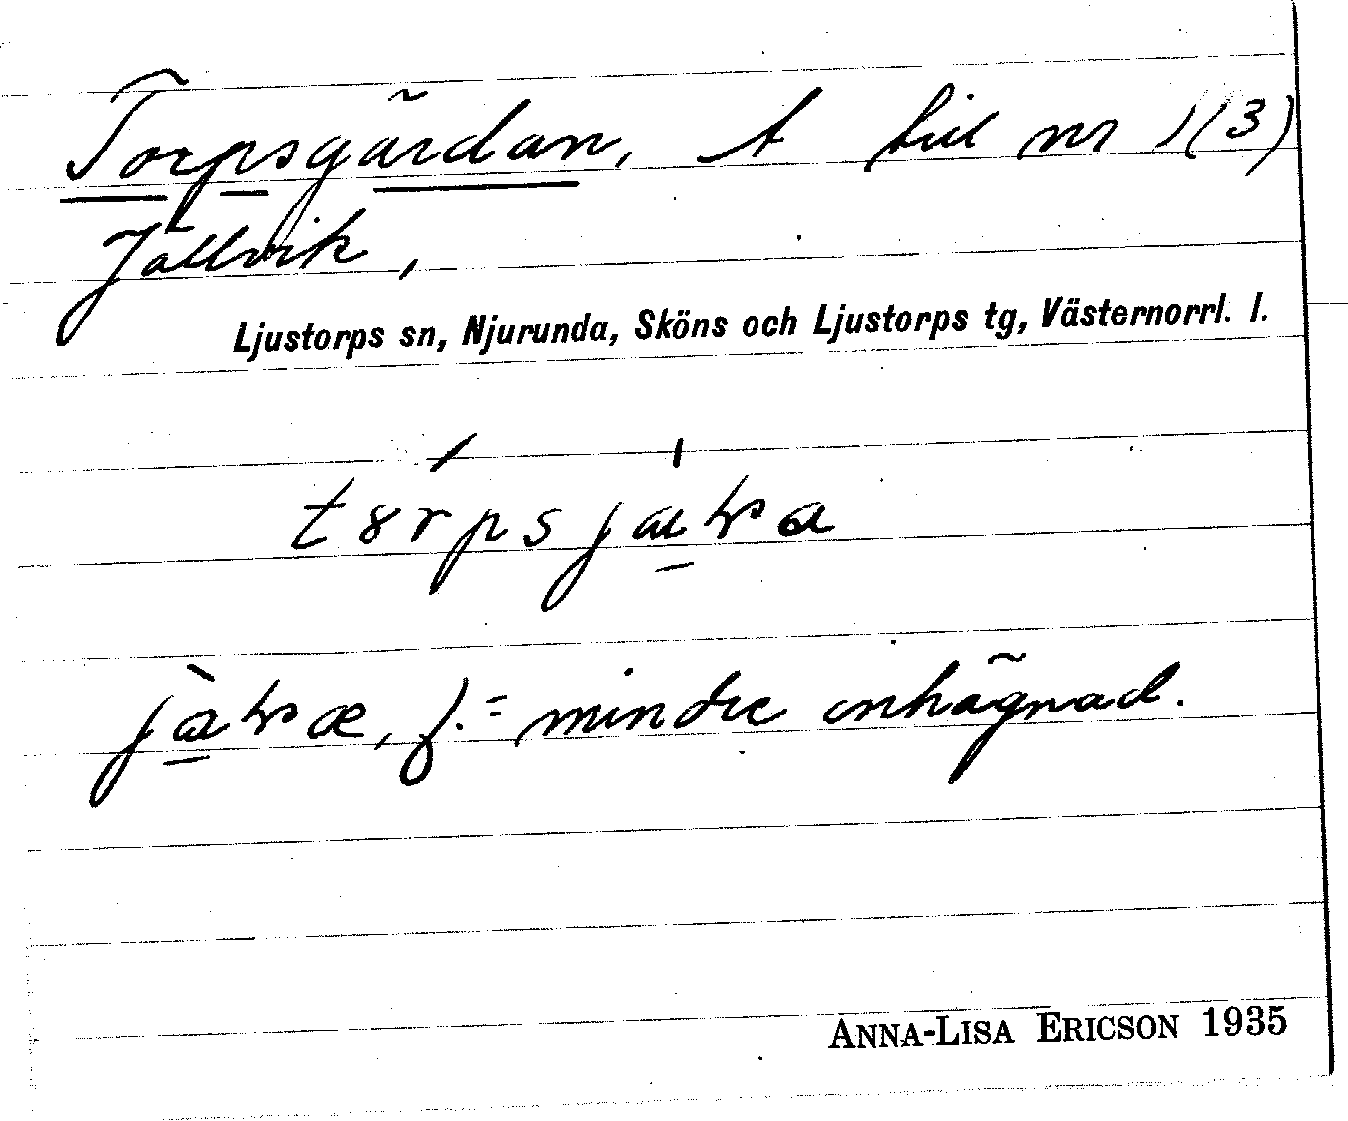 Torpsgärdan, Å till nr 1(3)
Jällvik,
Ljustorps sn, Njurunda, Sköns och Ljustorps tg, Västernorrl. l.
mindre inhägnad.
ANNA-LISA ERICSON 1935